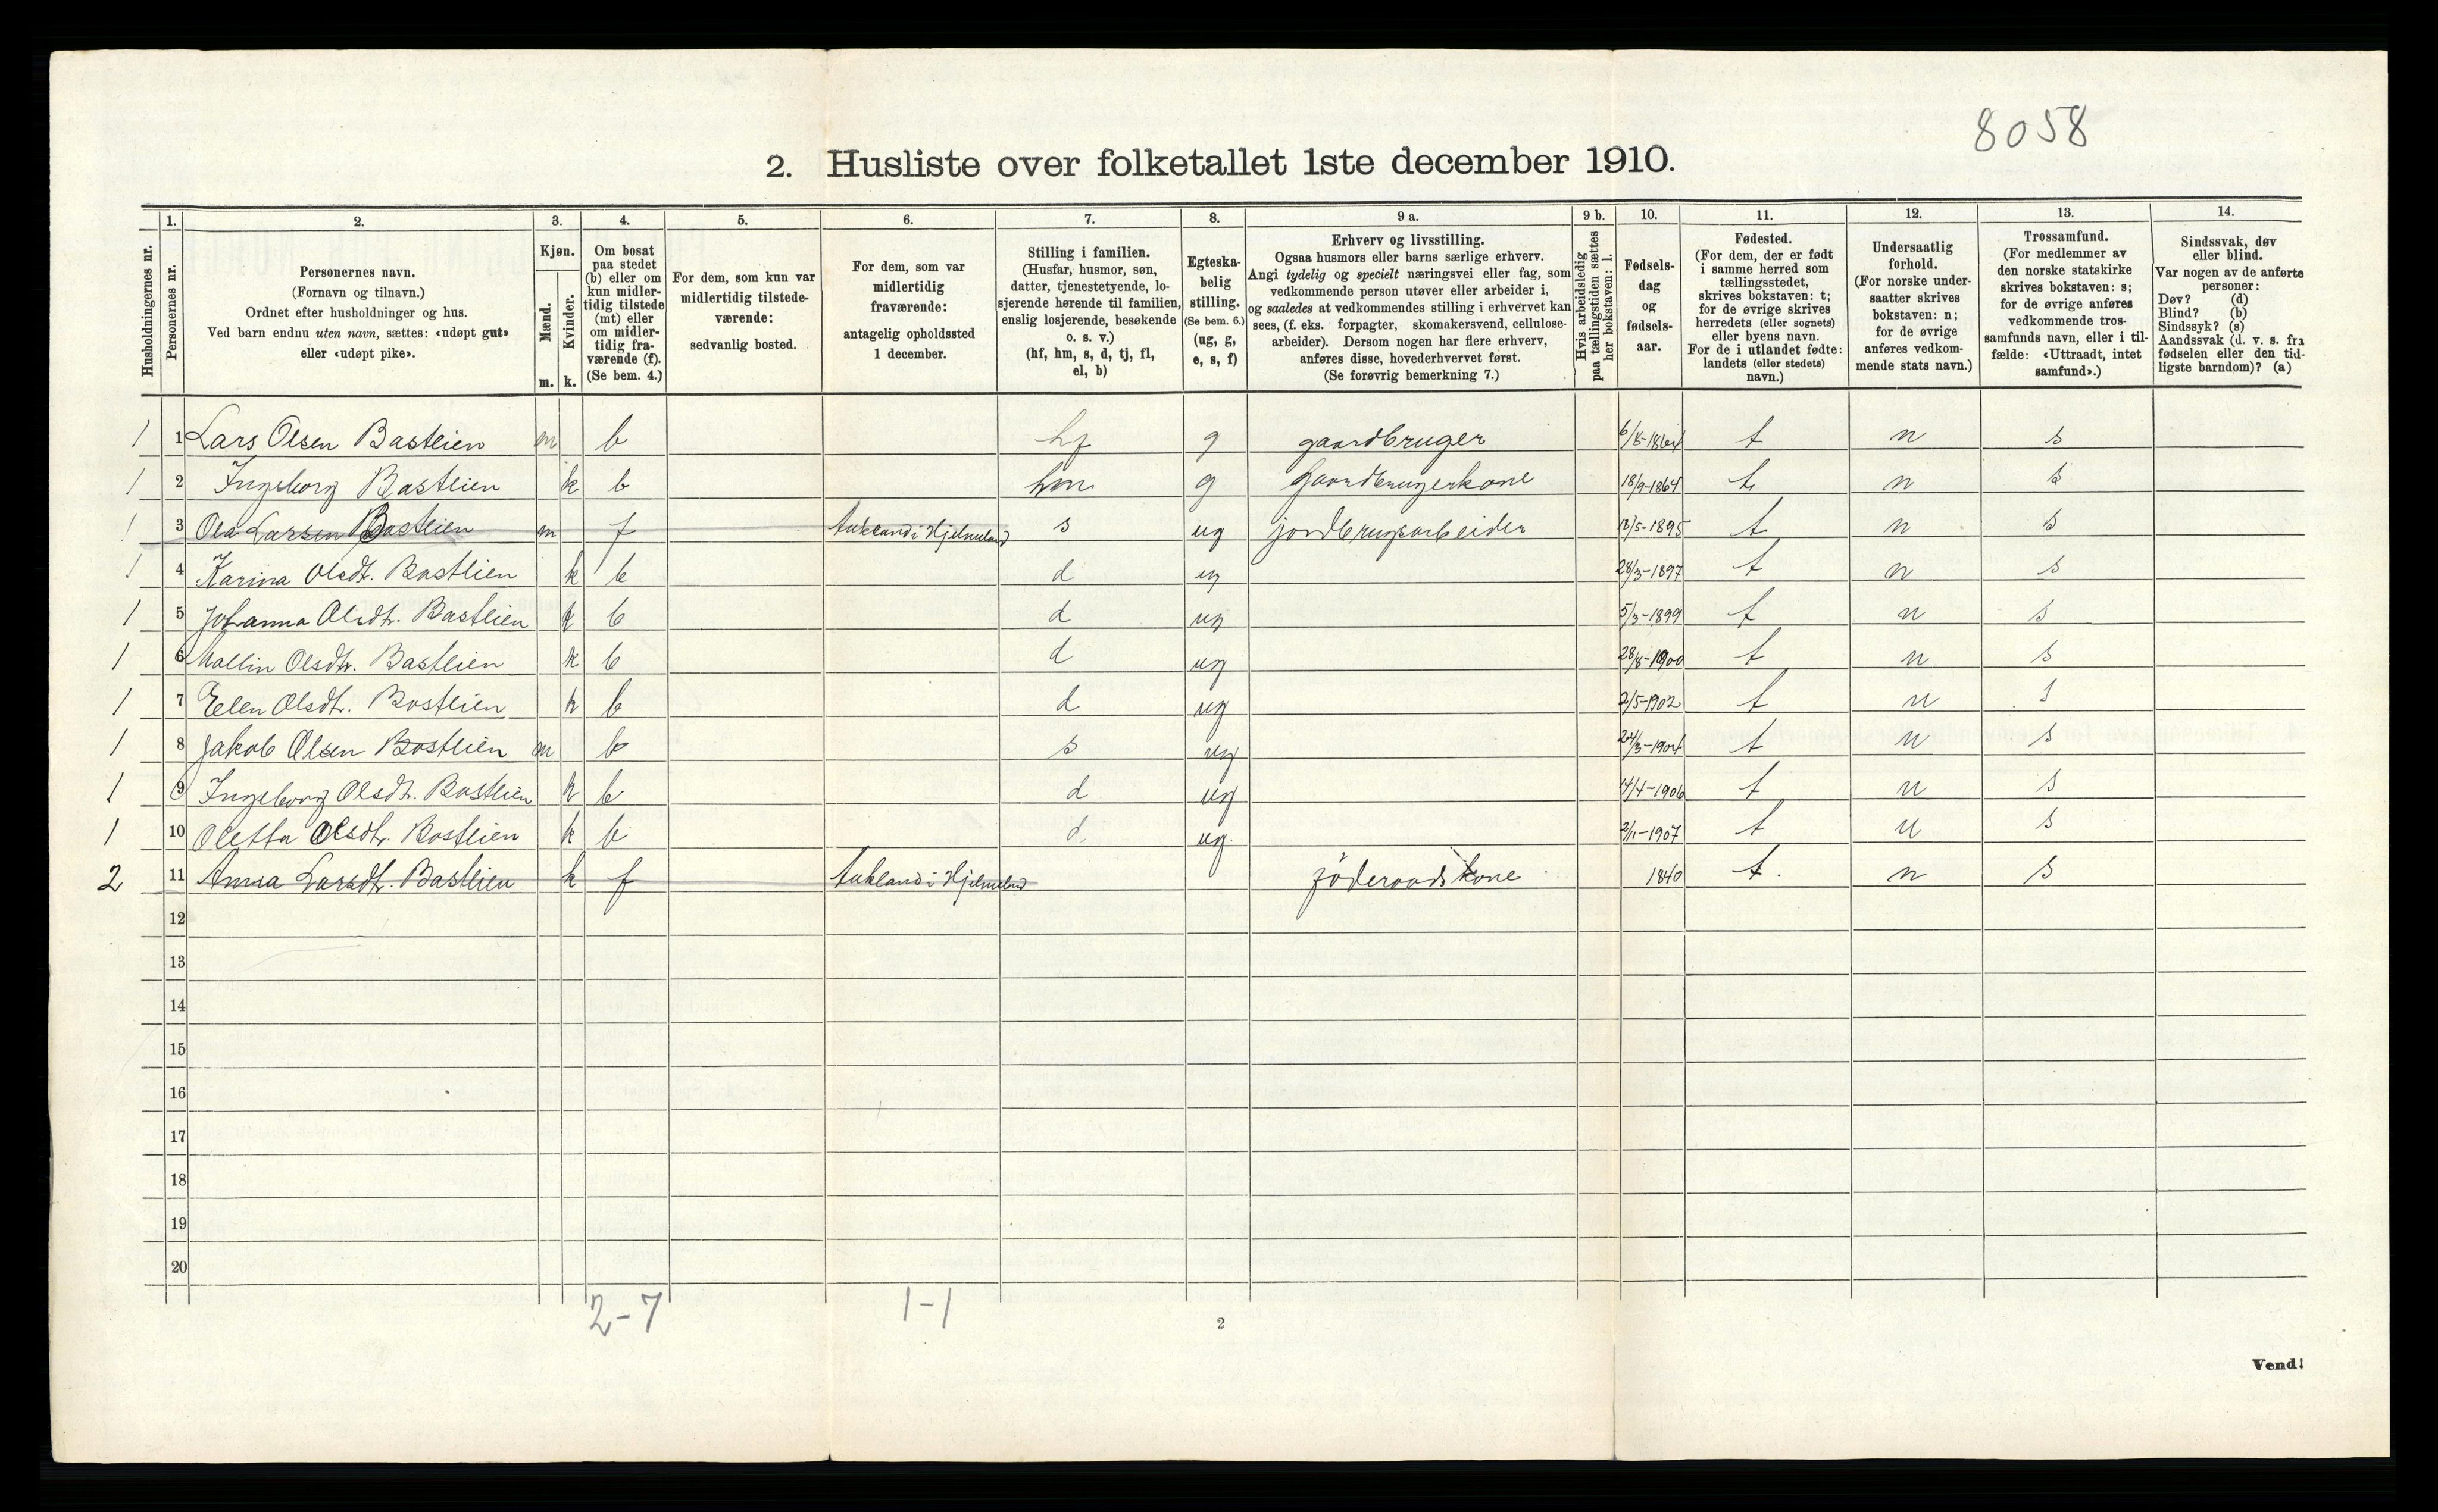 8058
2. Husliste over folketallet 1ste december 1910.
Husholdningernes nr.
1.
Personernes nr.
2.
Personernes navn.
(Fornavn og tilnavn.)
Ordnet efter husholdninger og hus.
Ved barn endnu uten navn, sættes: «udøpt gut»
eller «udøpt pike».
3.
Kjøn.
Mænd.
Kvinder.
m. k.
4.
Om bosat
paa stedet
(b) eller om
kun midler-
tidig tilstede
(mt) eller
om midler-
tidig fra-
værende (f).
(Se bem. 4.)
5.
For dem, som kun var
midlertidig tilstede-
værende:
sedvanlig bosted.
6.
For dem, som var
midlertidig
fraværende:
antagelig opholdssted
1 december.
7.
Stilling i familien.
(Husfar, husmor, søn,
datter, tjenestetyende, lo-
sjerende hørende til familien,
enslig losjerende, besøkende
o. s. v.)
(hf, hm, s, d, tj, fl,
el, b)
8.
Egteska-
belig
stilling.
(Se bem. 6.)
(ug, g,
e, s, f)
9 a.
Erhverv og livsstilling.
Ogsaa husmors eller barns særlige erhverv.
Angi tydelig og specielt næringsvei eller fag, som
vedkommende person utøver eller arbeider i,
og saaledes at vedkommendes stilling i erhvervet kan
sees, (f. eks. forpagter, skomakersvend, cellulose-
arbeider). Dersom nogen har flere erhverv,
anføres disse, hovederhvervet først.
(Se forøvrig bemerkning 7.)
9 b.
Hvis arbeidsledig
paa tællingstiden sættes
her bokstaven: l.
10.
Fødsels-
dag
og
fødsels-
aar.
11.
Fødested.
(For dem, der er født
i samme herred som
tællingsstedet,
skrives bokstaven: t;
for de øvrige skrives
herredets (eller sognets)
eller byens navn.
For de i utlandet fødte:
landets (eller stedets)
navn.)
12.
Undersaatlig
forhold.
(For norske under-
saatter skrives
bokstaven: n;
for de øvrige
anføres vedkom-
mende stats navn.)
13.
Trossamfund.
(For medlemmer av
den norske statskirke
skrives bokstaven: s;
for de øvrige anføres
vedkommende tros-
samfunds navn, eller i til-
fælde: «Uttraadt, intet
samfund».)
14.
Sindssvak, døv
eller blind.
Var nogen av de anførte
personer:
Døv? (d)
Blind? (b)
Sindssyk? (s)
Aandssvak (d. v. s. fra
fødselen eller den tid-
ligste barndom)? (a)
1 1 Lars Olsen Bastlien m b hf g gaardbruger 6/8-1864 t n s
1 2 Ingeborg Bastlien k b hm g gaardbrugerkone 18/9-1864 t n s
1 3 Ola Larsen Bastlien m f Aukland i Hjelmeland s ug jordbrugsarbeider 13/5-1895 t n s
1 4 Karina Olsdt. Bastlien k b d ug 28/3-1897 t n s
1 5 Johanna Olsdt. Bastlien k b d ug 5/3-1899 t n s
1 6 Mallin Olsdtr. Bastlien k b d ug 28/8-1900 t n s
1 7 Elen Olsdt. Bastlien k b d ug 2/5-1902 t n s
1 8 Jakob Olsen Bastlien m b s ug 24/3-1904 t n s
1 9 Ingeborg Olsdt. Bastlien k b d ug 14/4-1906 t n s
1 10 Oletta Olsdt. Bastlien k b d ug. 2/11-1907 t n s
2 11 Anna Larsdt. Bastlien k f Aukland i Hjelmeland föderaadskone 1840 t. n s
12
13
14
15
16
17
18
19
20
2-7 1-1
2
Vend!